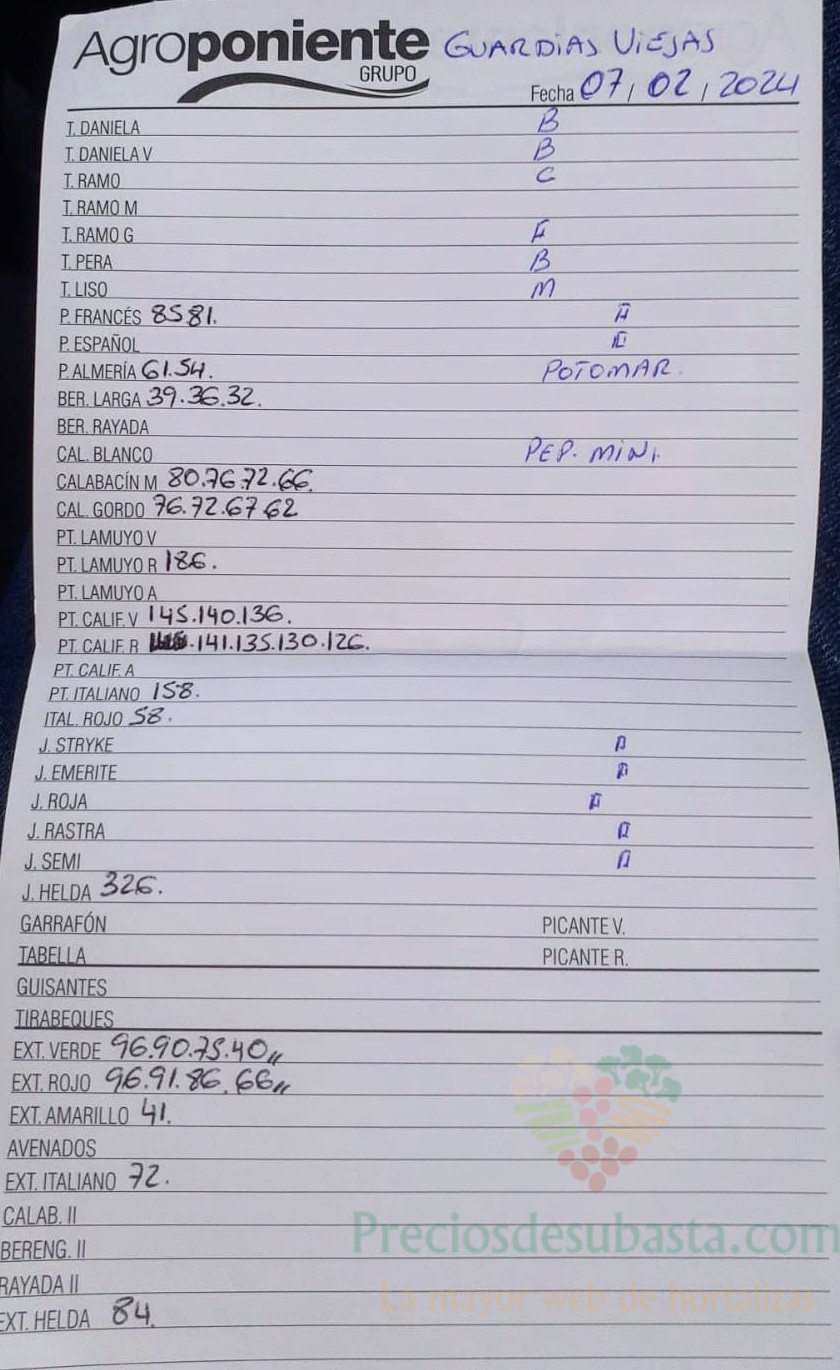 Agroponiente GUARDIAS VIEJAS
GRUPO
Fecha 07/02/2024
T. DANIELA B
T. DANIELA V B
T. RAMO C
T. RAMO M
T. RAMO G F
T. PERA B
T. LISO M
P. FRANCÉS 85 81.
P. ESPAÑOL
P. ALMERÍA 61.54. POTOMAR.
BER. LARGA 39.36.32.
BER. RAYADA
CAL. BLANCO PEP. MINI.
CALABACÍN M 80.76.72.66.
CAL. GORDO 76.72.67 62
PT. LAMUYO V
PT. LAMUYO R 186.
PT. LAMUYO A
PT. CALIF. V 145.140.136.
PT. CALIF. R .141.135.130.126.
PT. CALIF. A
PT. ITALIANO 158.
ITAL. ROJO 58.
J. STRYKE
J. EMERITE
J. ROJA
J. RASTRA
J. SEMI
J. HELDA 326.
GARRAFÓN PICANTE V.
TABELLA PICANTE R.
GUISANTES
TIRABEQUES
EXT. VERDE 96.90.75.40,,
EXT. ROJO 96.91.86.66,,
EXT. AMARILLO 41.
AVENADOS
EXT. ITALIANO 72.
CALAB. II
Preciosdesubasta.com
BERENG. II
RAYADA II
La mayor web de hortalizas
EXT. HELDA 84.